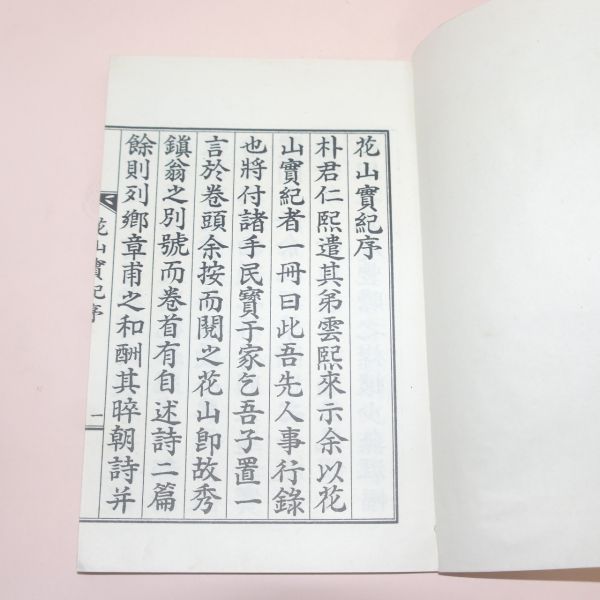 花山寶紀序
朴君仁熙遣其弟雲熙來示余以花
山寶紀者一冊曰此吾先人事行錄
也將付諸手民寶于家乞吾子置一
言於卷頭余按而閱之花山卽故秀
鎭翁之別號而卷首有自述詩二篇
餘則列鄉章甫之和酬其晬朝詩并
花山寶紀序
一